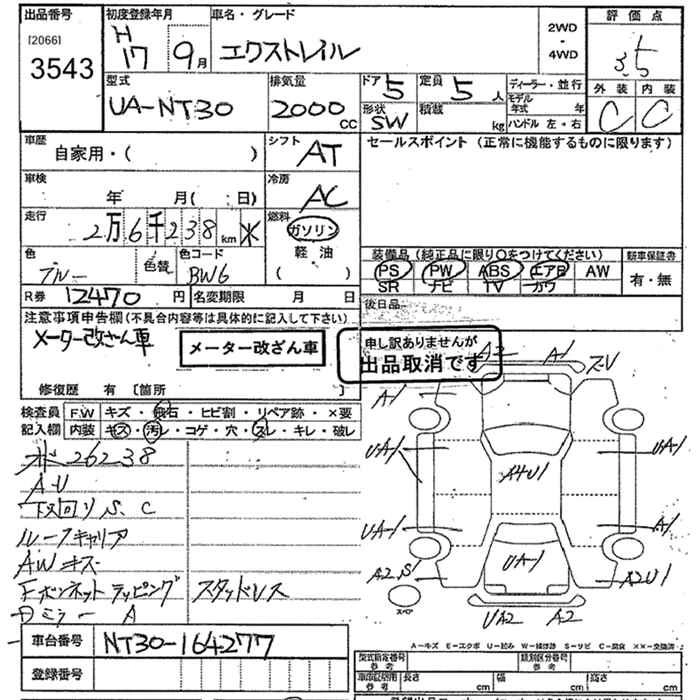 出品番号
[2066]
3543
初度登録年月
H
17 9月
車名・グレード
エクストレイル
2WD
・
4WD
評価点
3.5
外装 内装
C C
型式
UA-NT30
排気量
2000 CC
ドア 5
形状 SW
定員 5 人
積載 kg
ディーラー・並行
モデル年式 年
ハンドル 左・右
車歴
自家用・( )
シフト AT
セールスポイント (正常に機能するものに限ります)
車検
年 月( 日)
冷房 AC
走行
2万6千238km 米
燃料
ガソリン
軽油
( )
色
ブルー
色替
色コード
BW6
装備品 (純正品に限り○をつけてください)
PS PW ABS エアB AW
SR ナビ TV カワ
新車保証書
有・無
R券 12470 円
名変期限 月 日
後日品
注意事項申告欄 (不具合内容等は具体的に記入して下さい)
メーター改ざん車
メーター改ざん車
申し訳ありませんが
出品取消です
修復歴 有 〔箇所
検査員
記入欄
F.W キズ・飛石・ヒビ割・リペア跡・×要
内装 キズ・汚レ・コゲ・穴・スレ・キレ・破レ
米 26238
A-U
下回りS、C
ルーフキャリア
AWキズ
Fボンネットラッピング スタッドレス
Dミラー A
A2 A-1
A-1
UA-1
UA-1
A4U1
UA-1
A-1
UA-1
A2S1
A2U1
UA2 A2
スペア
車台番号
NT30-164277
登録番号
A-キズ E-エクボ U-凹み W-補修跡 S-サビ C-腐食 ××-交換済
型式指定番号
参考
類別区分番号
参考
車検証用
参考
長さ cm
幅 cm
高さ cm